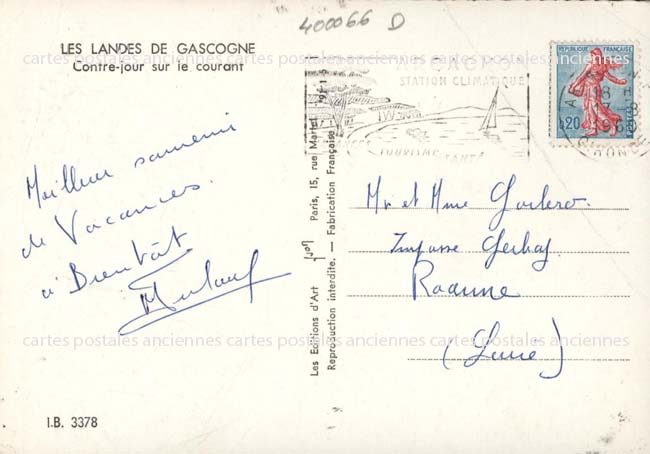 400066 D
LES LANDES DE GASCOGNE
Contre-jour sur le courant
ARCACHON
STATION CLIMATIQUE
TOURISME SANTÉ
REPUBLIQUE FRANÇAISE
0,20
18 H
GIRONDE
Meilleur souvenir
de Vacances.
à Bientôt
Les Editions d'Art Paris, 15, rue Martel
Reproduction interdite. — Fabrication Française
Mr et Mme
Impasse
Roanne
(Loire)
I.B. 3378
cartes postales anciennes cartes postales anciennes cartes postales anciennes
cartes postales anciennes cartes postales anciennes cartes postales anciennes